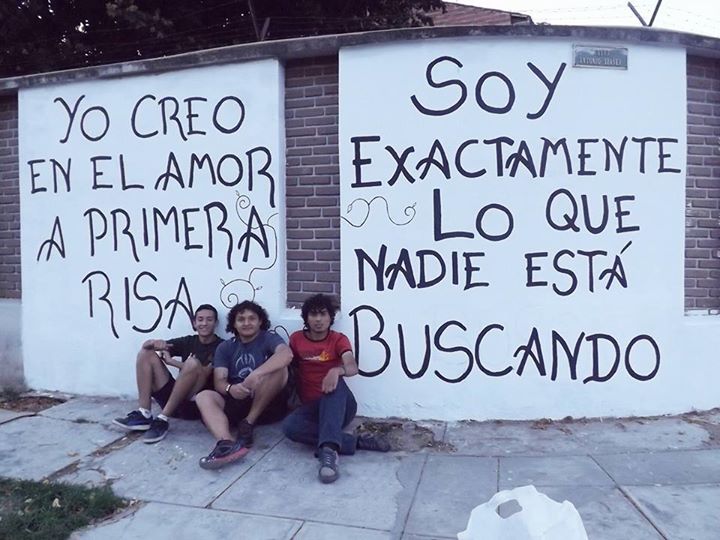 YO CREO
EN EL AMOR
A PRIMERA
RISA
SOY
EXACTAMENTE
LO QUE
NADIE ESTÁ
BUSCANDO